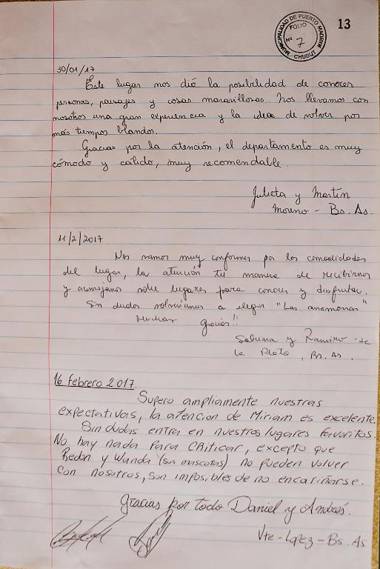 MUNICIPALIDAD DE PUERTO MADRYN
FOLIO
Nº 7
CHUBUT
13
30/01/17
Este lugar nos dió la posibilidad de conocer
personas, paisajes y cosas maravillosas. Nos llevamos con
nosotros una gran experiencia y la idea de volver por
más tiempos blandos.
Gracias por la atención, el departamento es muy
cómodo y cálido, muy recomendable.
Julieta y Martín
Moreno - Bs. As.
11/2/2017
Nos vamos muy conformes por las comodidades
del lugar, la atención tu manera de recibirnos
y aconsejarnos sobre lugares para conocer y disfrutar.
Sin dudas volveriamos a elegir "Las anemonas"
Muchas gracias!!
Sabrina y Ramiro de
La Plata, Bs. As.
16 Febrero 2017.
Supero ampliamente nuestras
expectativas, la atencion de Miriam es excelente
Sin dudas entra en nuestros lugares favoritos.
No hay nada para criticar, excepto que
y Wanda (sus mascotas) no pueden volver
con nosotros, son imposibles de no encariñarse.
Gracias por todo Daniel y Andrés.
Vte - Lopez - Bs. As